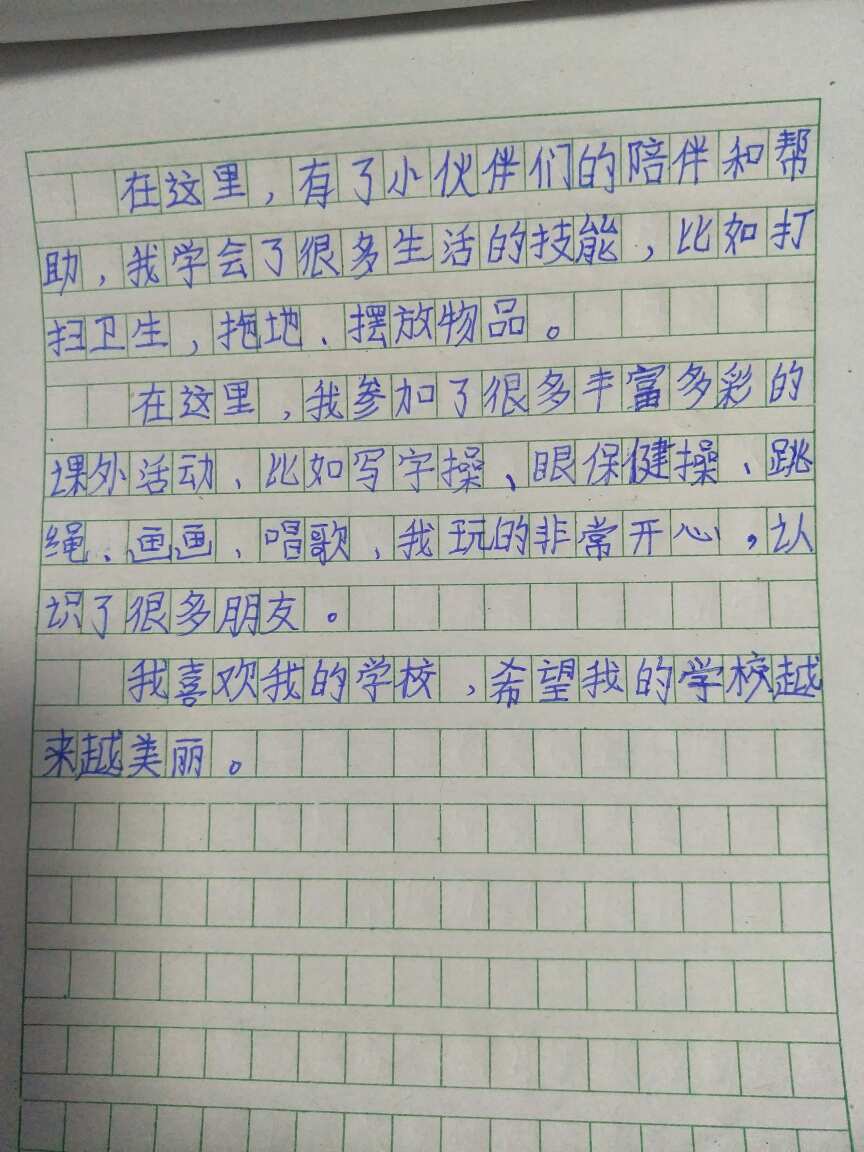 在这里，有了小伙伴们的陪伴和帮
助，我学会了很多生活的技能，比如打
扫卫生，拖地、摆放物品。
在这里，我参加了很多丰富多彩的
课外活动、比如写字操、眼保健操、跳
绳、画画、唱歌，我玩的非常开心，认
识了很多朋友。
我喜欢我的学校，希望我的学校越
来越美丽。